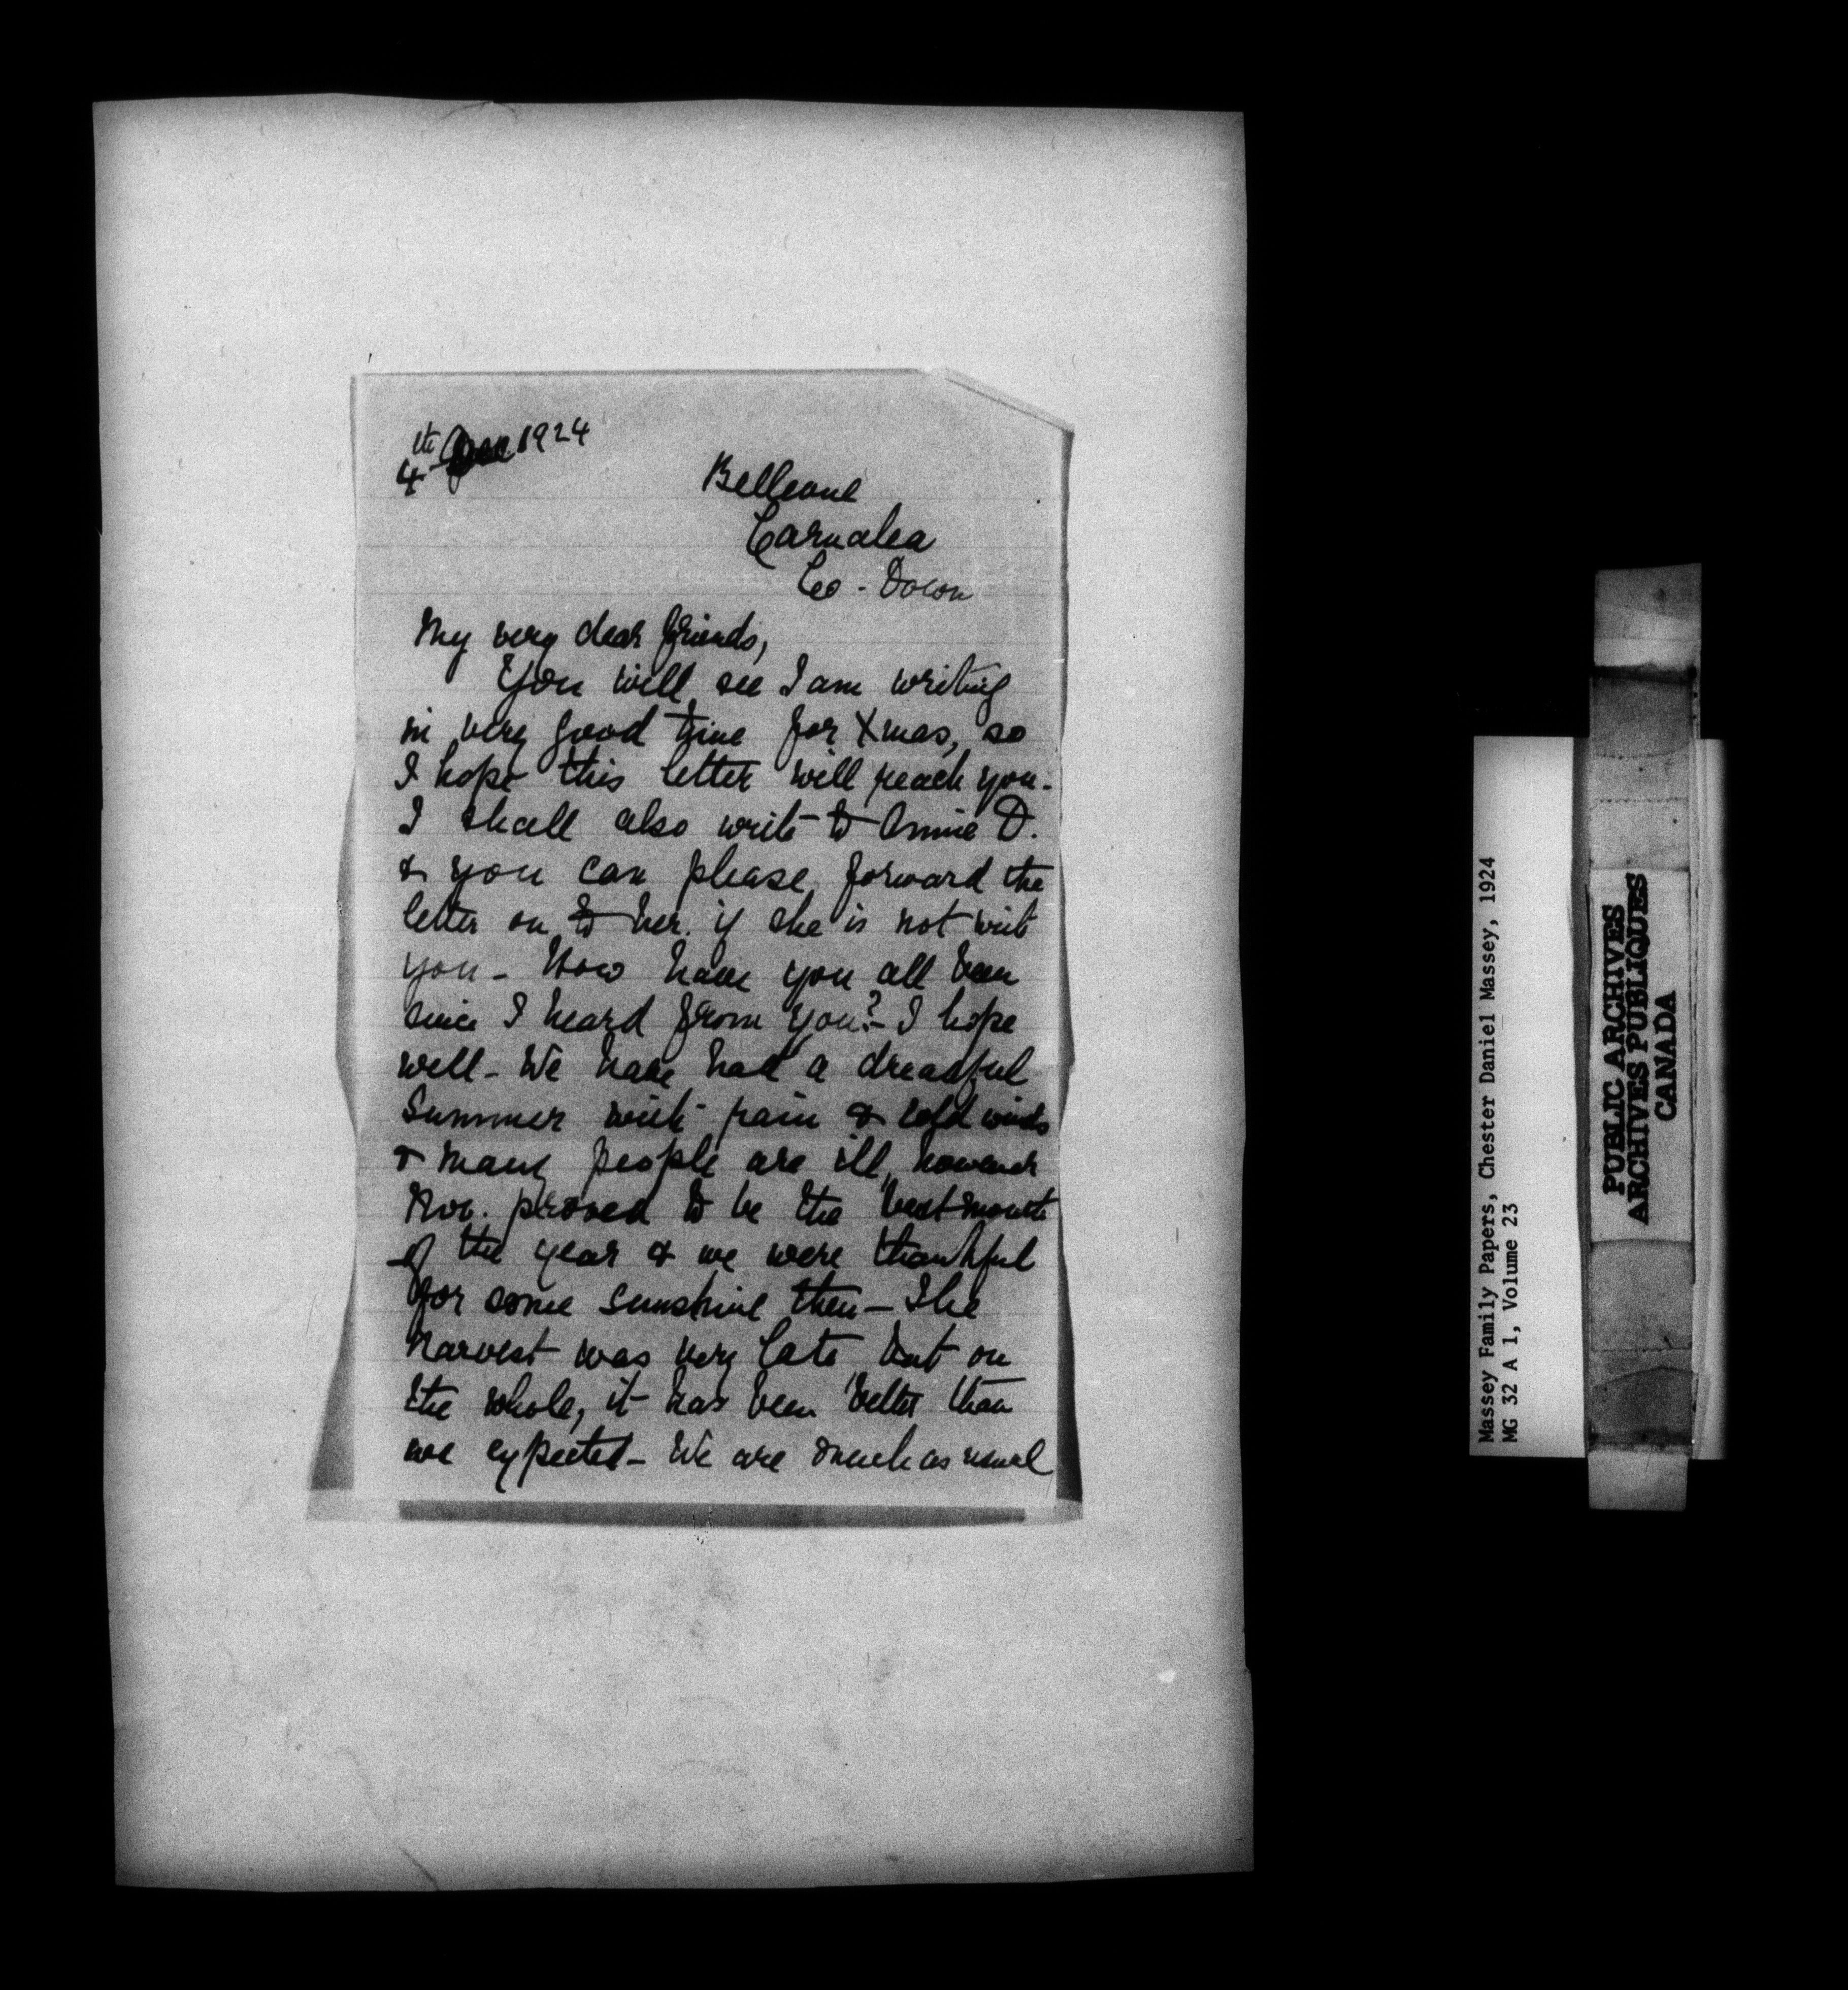 4th Dec 1924
Bellevue
Carnalea
Co - Down
My very dear friends,
You will see I am writing
in very good time for Xmas, so
I hope this letter will reach you.
I shall also write to Annie D.
& you can please forward the
letter on to her. if she is not with
you - How have you all been
since I heard from you? - I hope
well - We have had a dreadful
Summer with rain & cold winds
& many people are ill, however
Nov. proved to be the best month
of the year & we were thankful
for some sunshine then - The
harvest was very late but on
the whole, it has been better than
we expected - We are much as usual
Massey Family Papers, Chester Daniel Massey, 1924
MG 32 A 1, Volume 23
PUBLIC ARCHIVES
ARCHIVES PUBLIQUES
CANADA